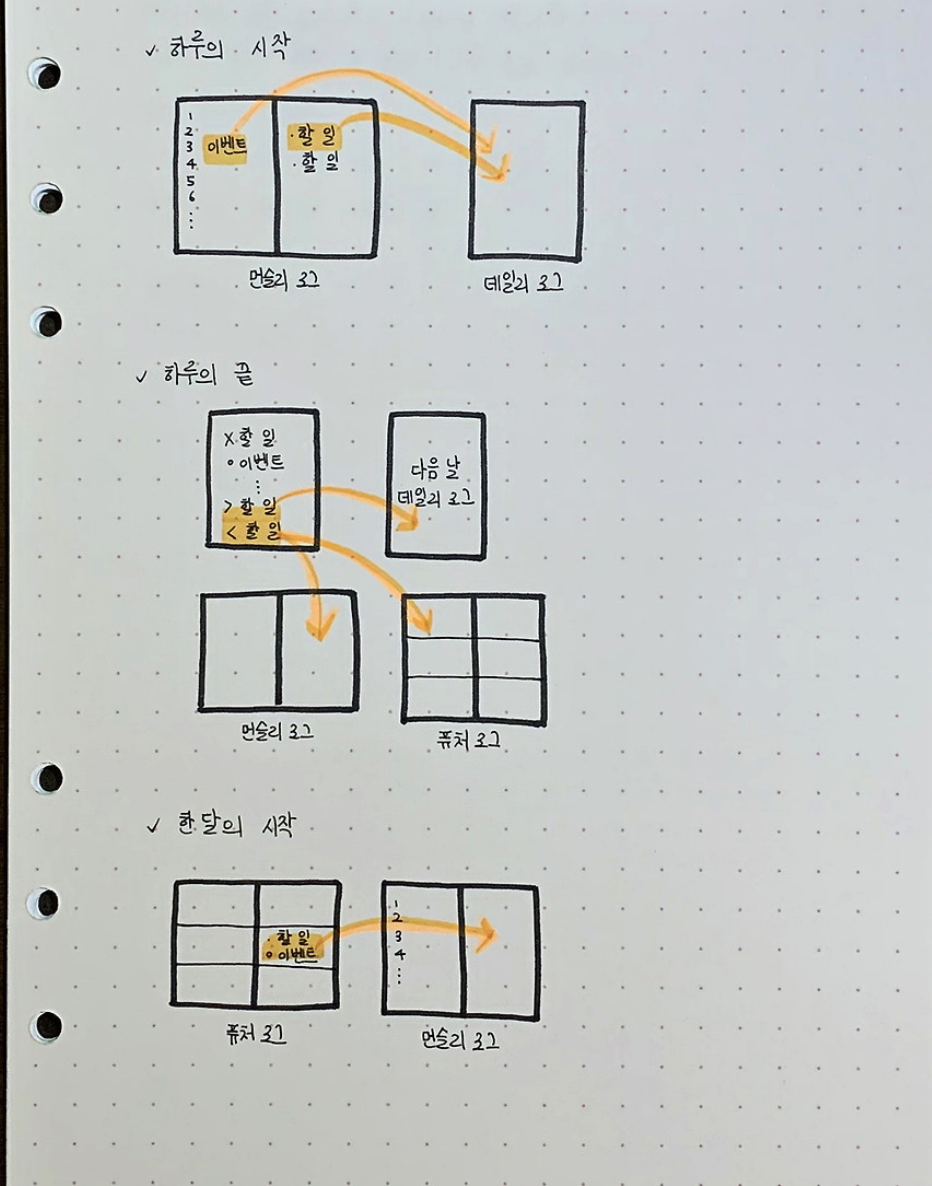 ✓ 하루의 시작
1
2
3 이벤트
4
5
6
⋮
· 할 일
· 할 일
먼슬리 로그
데일리 로그
✓ 하루의 끝
x 할 일
∘ 이벤트
⋮
> 할 일
< 할 일
다음 날
데일리 로그
먼슬리 로그
퓨처 로그
✓ 한 달의 시작
· 할 일
∘ 이벤트
퓨처 로그
1
2
3
4
⋮
먼슬리 로그